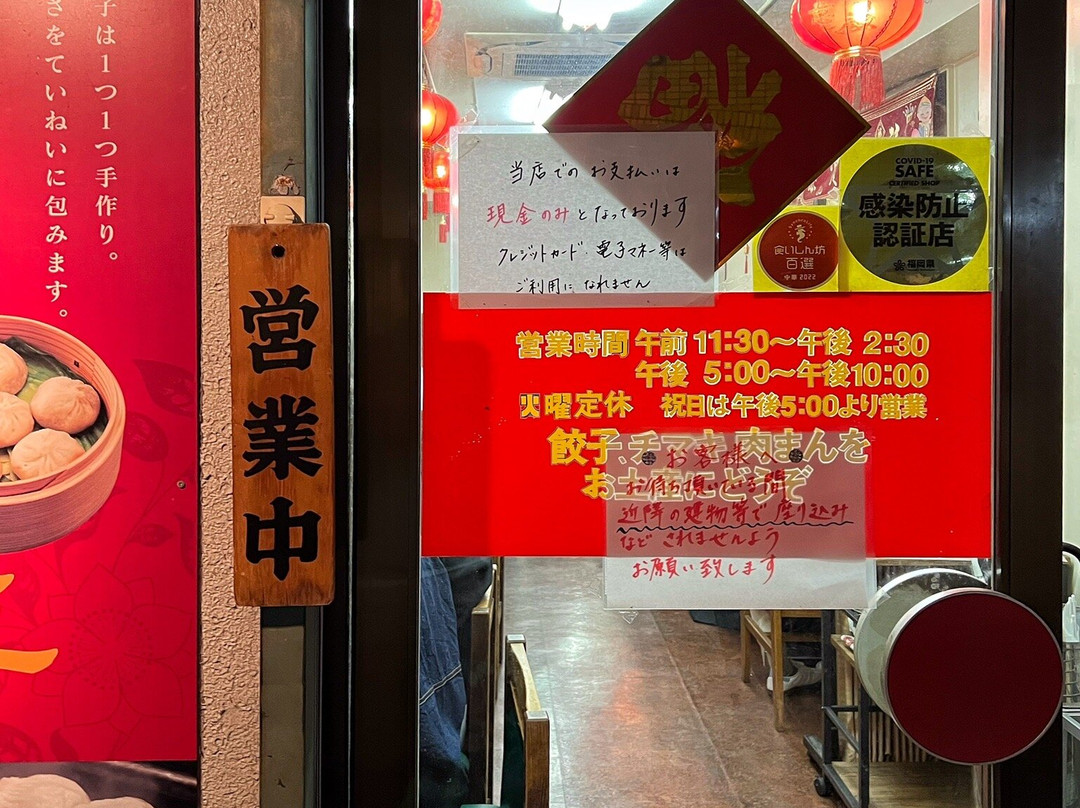 子は1つ1つ手作り。
さをていねいに包みます。
営業中
当店でのお支払いは
現金のみとなっております
クレジットカード・電子マネー等は
ご利用になれません
COVID-19
SAFE
CERTIFIED SHOP
感染防止
認証店
福岡県
食いしん坊
百選
中華 2022
営業時間 午前 11:30〜午後 2:30
午後 5:00〜午後10:00
火曜定休 祝日は午後5:00より営業
餃子、チマキ、肉まんを
お土産にどうぞ
お客様へ
お待ち頂いている間
近隣の建物等で座り込み
などされませんよう
お願い致します